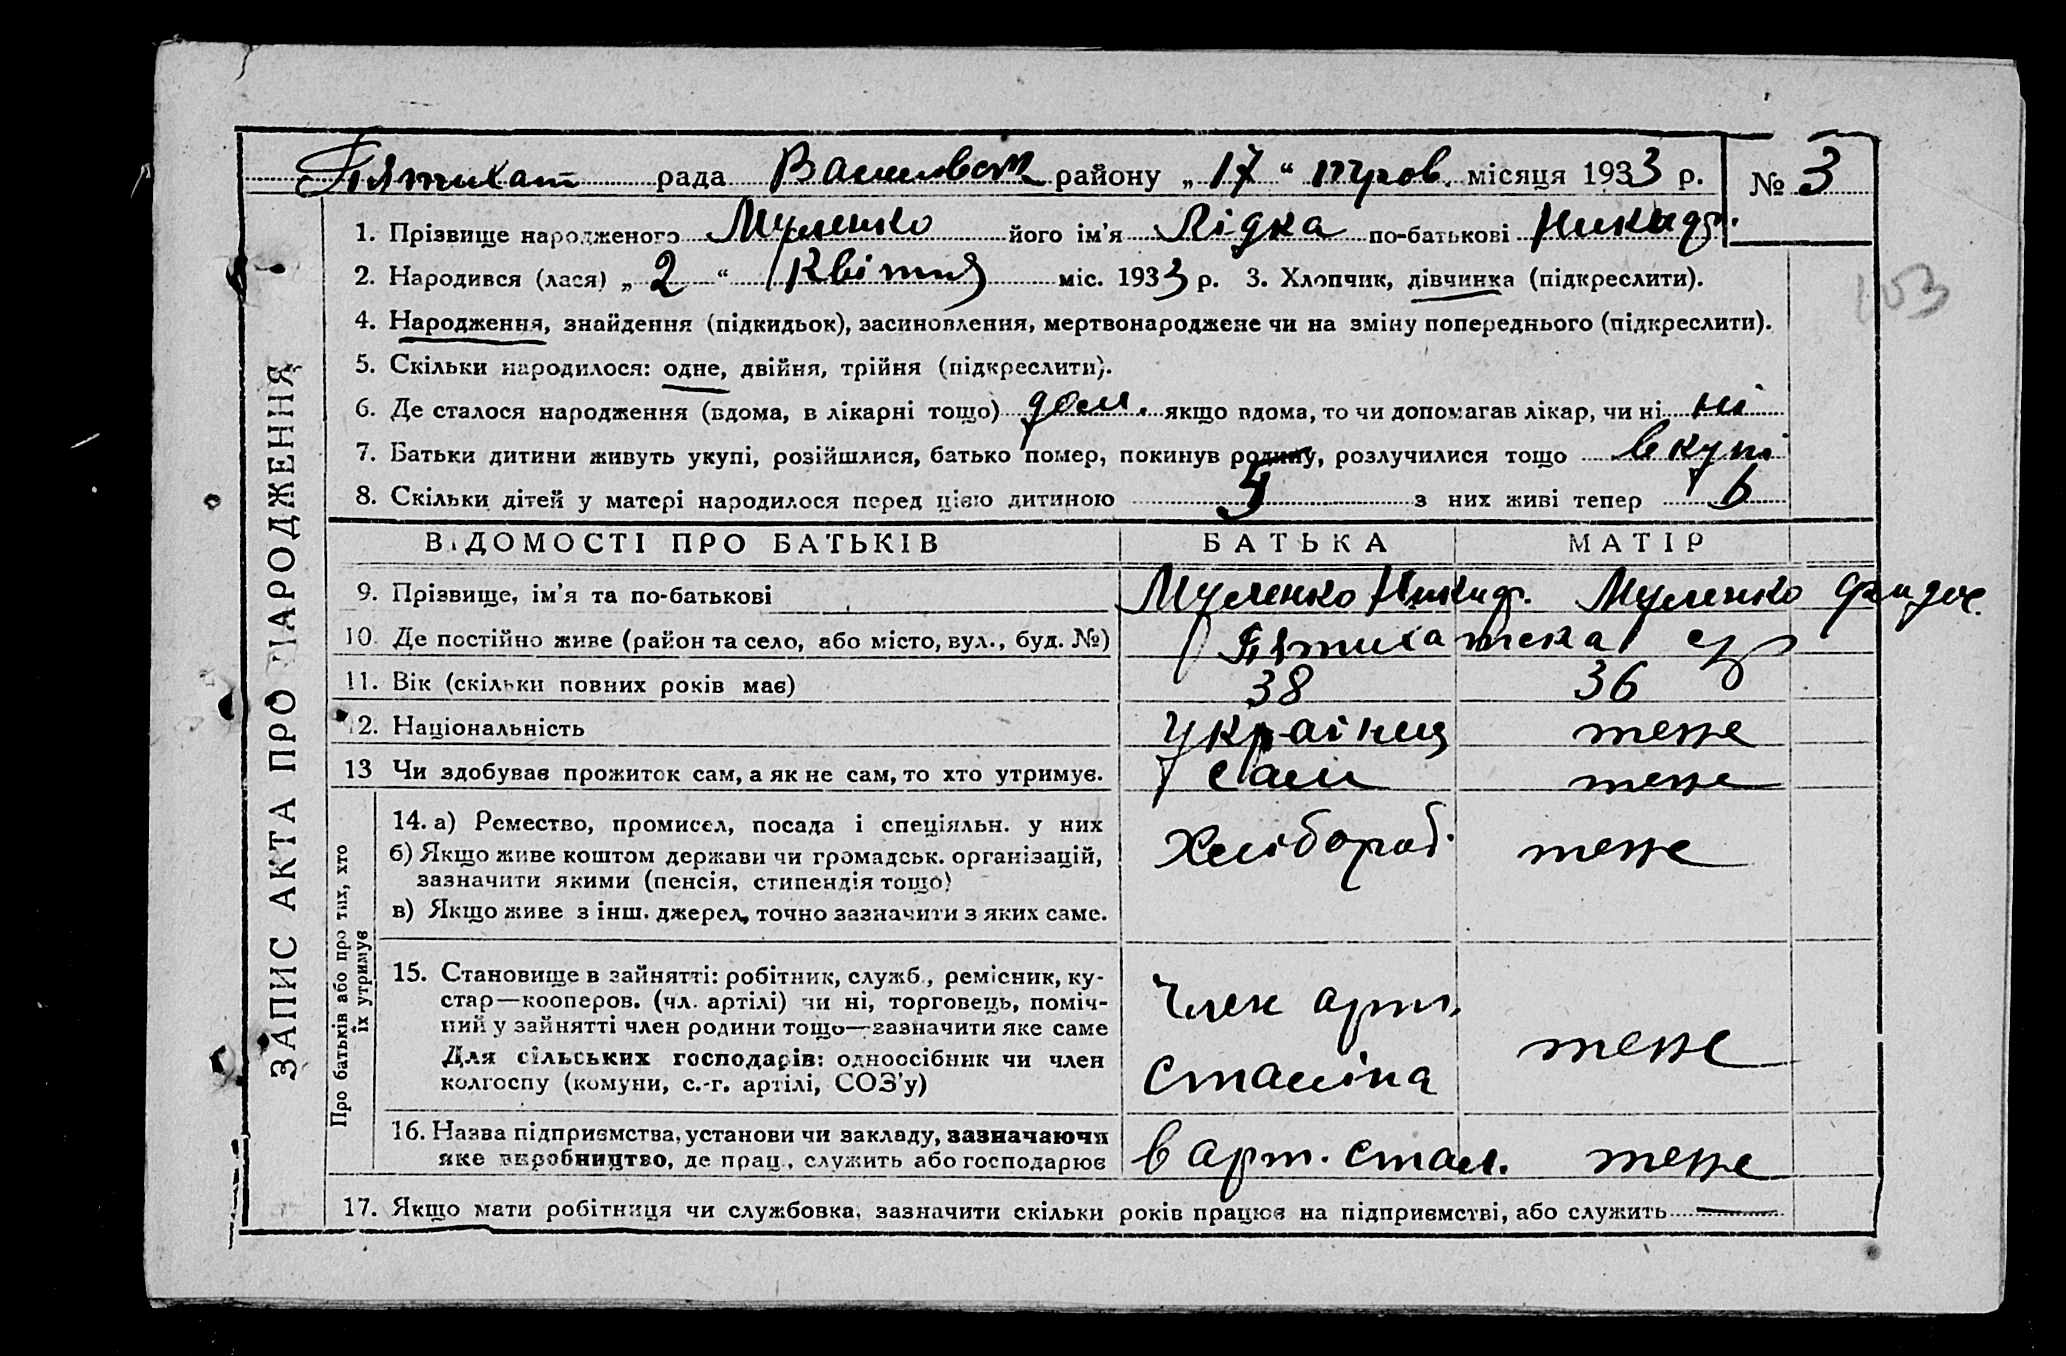 Пятихат рада Василовськ району „17“ трав. місяця 1933 р. № 3
1. Прізвище народженого Муленко його ім’я Лідка по-батькові Никиф.
2. Народився (лася) „2“ Квітня міс. 1933 р. 3. Хлопчик, дівчинка (підкреслити).
103
4. Народження, знайдення (підкидьок), засиновлення, мертвонароджене чи на зміну попереднього (підкреслити).
5. Скільки народилося: одне, двійня, трійня (підкреслити).
6. Де сталося народження (вдома, в лікарні тощо) дом. якщо вдома, то чи допомагав лікар, чи ні ні
7. Батьки дитини живуть укупі, розійшлися, батько помер, покинув родину, розлучилися тощо вкупі
8. Скільки дітей у матері народилося перед цією дитиною 5 з них живі тепер 6
ЗАПИС АКТА ПРО НАРОДЖЕННЯ
ВІДОМОСТІ ПРО БАТЬКІВ БАТЬКА МАТІР
9. Прізвище, ім’я та по-батькові Муленко Никиф. Муленко
10. Де постійно живе (район та село, або місто, вул., буд. №) Пятихатська
11. Вік (скільки повних років має) 38 36
12. Національність українец теже
13 Чи здобував прожиток сам, а як не сам, то хто утримує. сам теже
Про батьків або про тих, хто
їх утримує
14. а) Ремество, промисел, посада і спеціяльн. у них Хлібороб. теже
б) Якщо живе коштом держави чи громадськ. організацій,
зазначити якими (пенсія, стипендія тощо)
в) Якщо живе з інш. джерел, точно зазначити з яких саме.
15. Становище в зайнятті: робітник, служб., ремісник, ку-
стар—кооперов. (чл. артілі) чи ні, торговець, поміч- Член арт.
ний у зайнятті член родини тощо—зазначити яке саме теже
Для сільських господарів: одноосібник чи член Сталіна
колгоспу (комуни, с.-г. артілі, СОЗ’у)
16. Назва підприємства, установи чи закладу, зазначаючи
яке виробництво, де прац., служить або господарює в арт. стал. теже
17. Якщо мати робітниця чи службовка, зазначити скільки років працює на підприємстві, або служить —